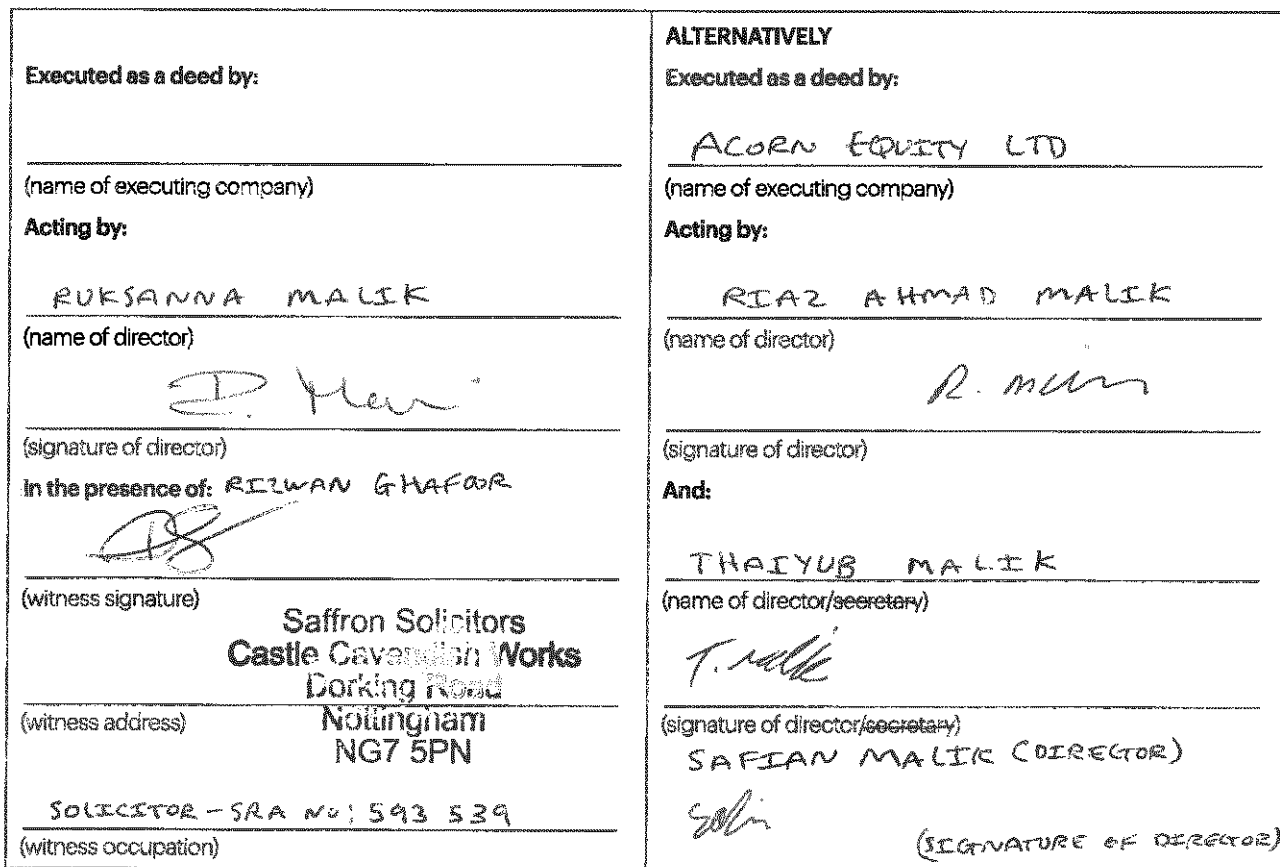 Executed as a deed by:
(name of executing company)
Acting by:
RUKSANNA MALIK
(name of director)
(signature of director)
In the presence of: RIZWAN GHAFOOR
(witness signature)
Saffron Solicitors
Castle Cavendish Works
Dorking Road
(witness address) Nottingham
NG7 5PN
SOLICITOR - SRA No: 593 539
(witness occupation)
ALTERNATIVELY
Executed as a deed by:
ACORN EQUITY LTD
(name of executing company)
Acting by:
RIAZ AHMAD MALIK
(name of director)
(signature of director)
And:
THAIYUB MALIK
(name of director/secretary)
T. Malik
(signature of director/secretary)
SAFIAN MALIK (DIRECTOR)
(SIGNATURE OF DIRECTOR)